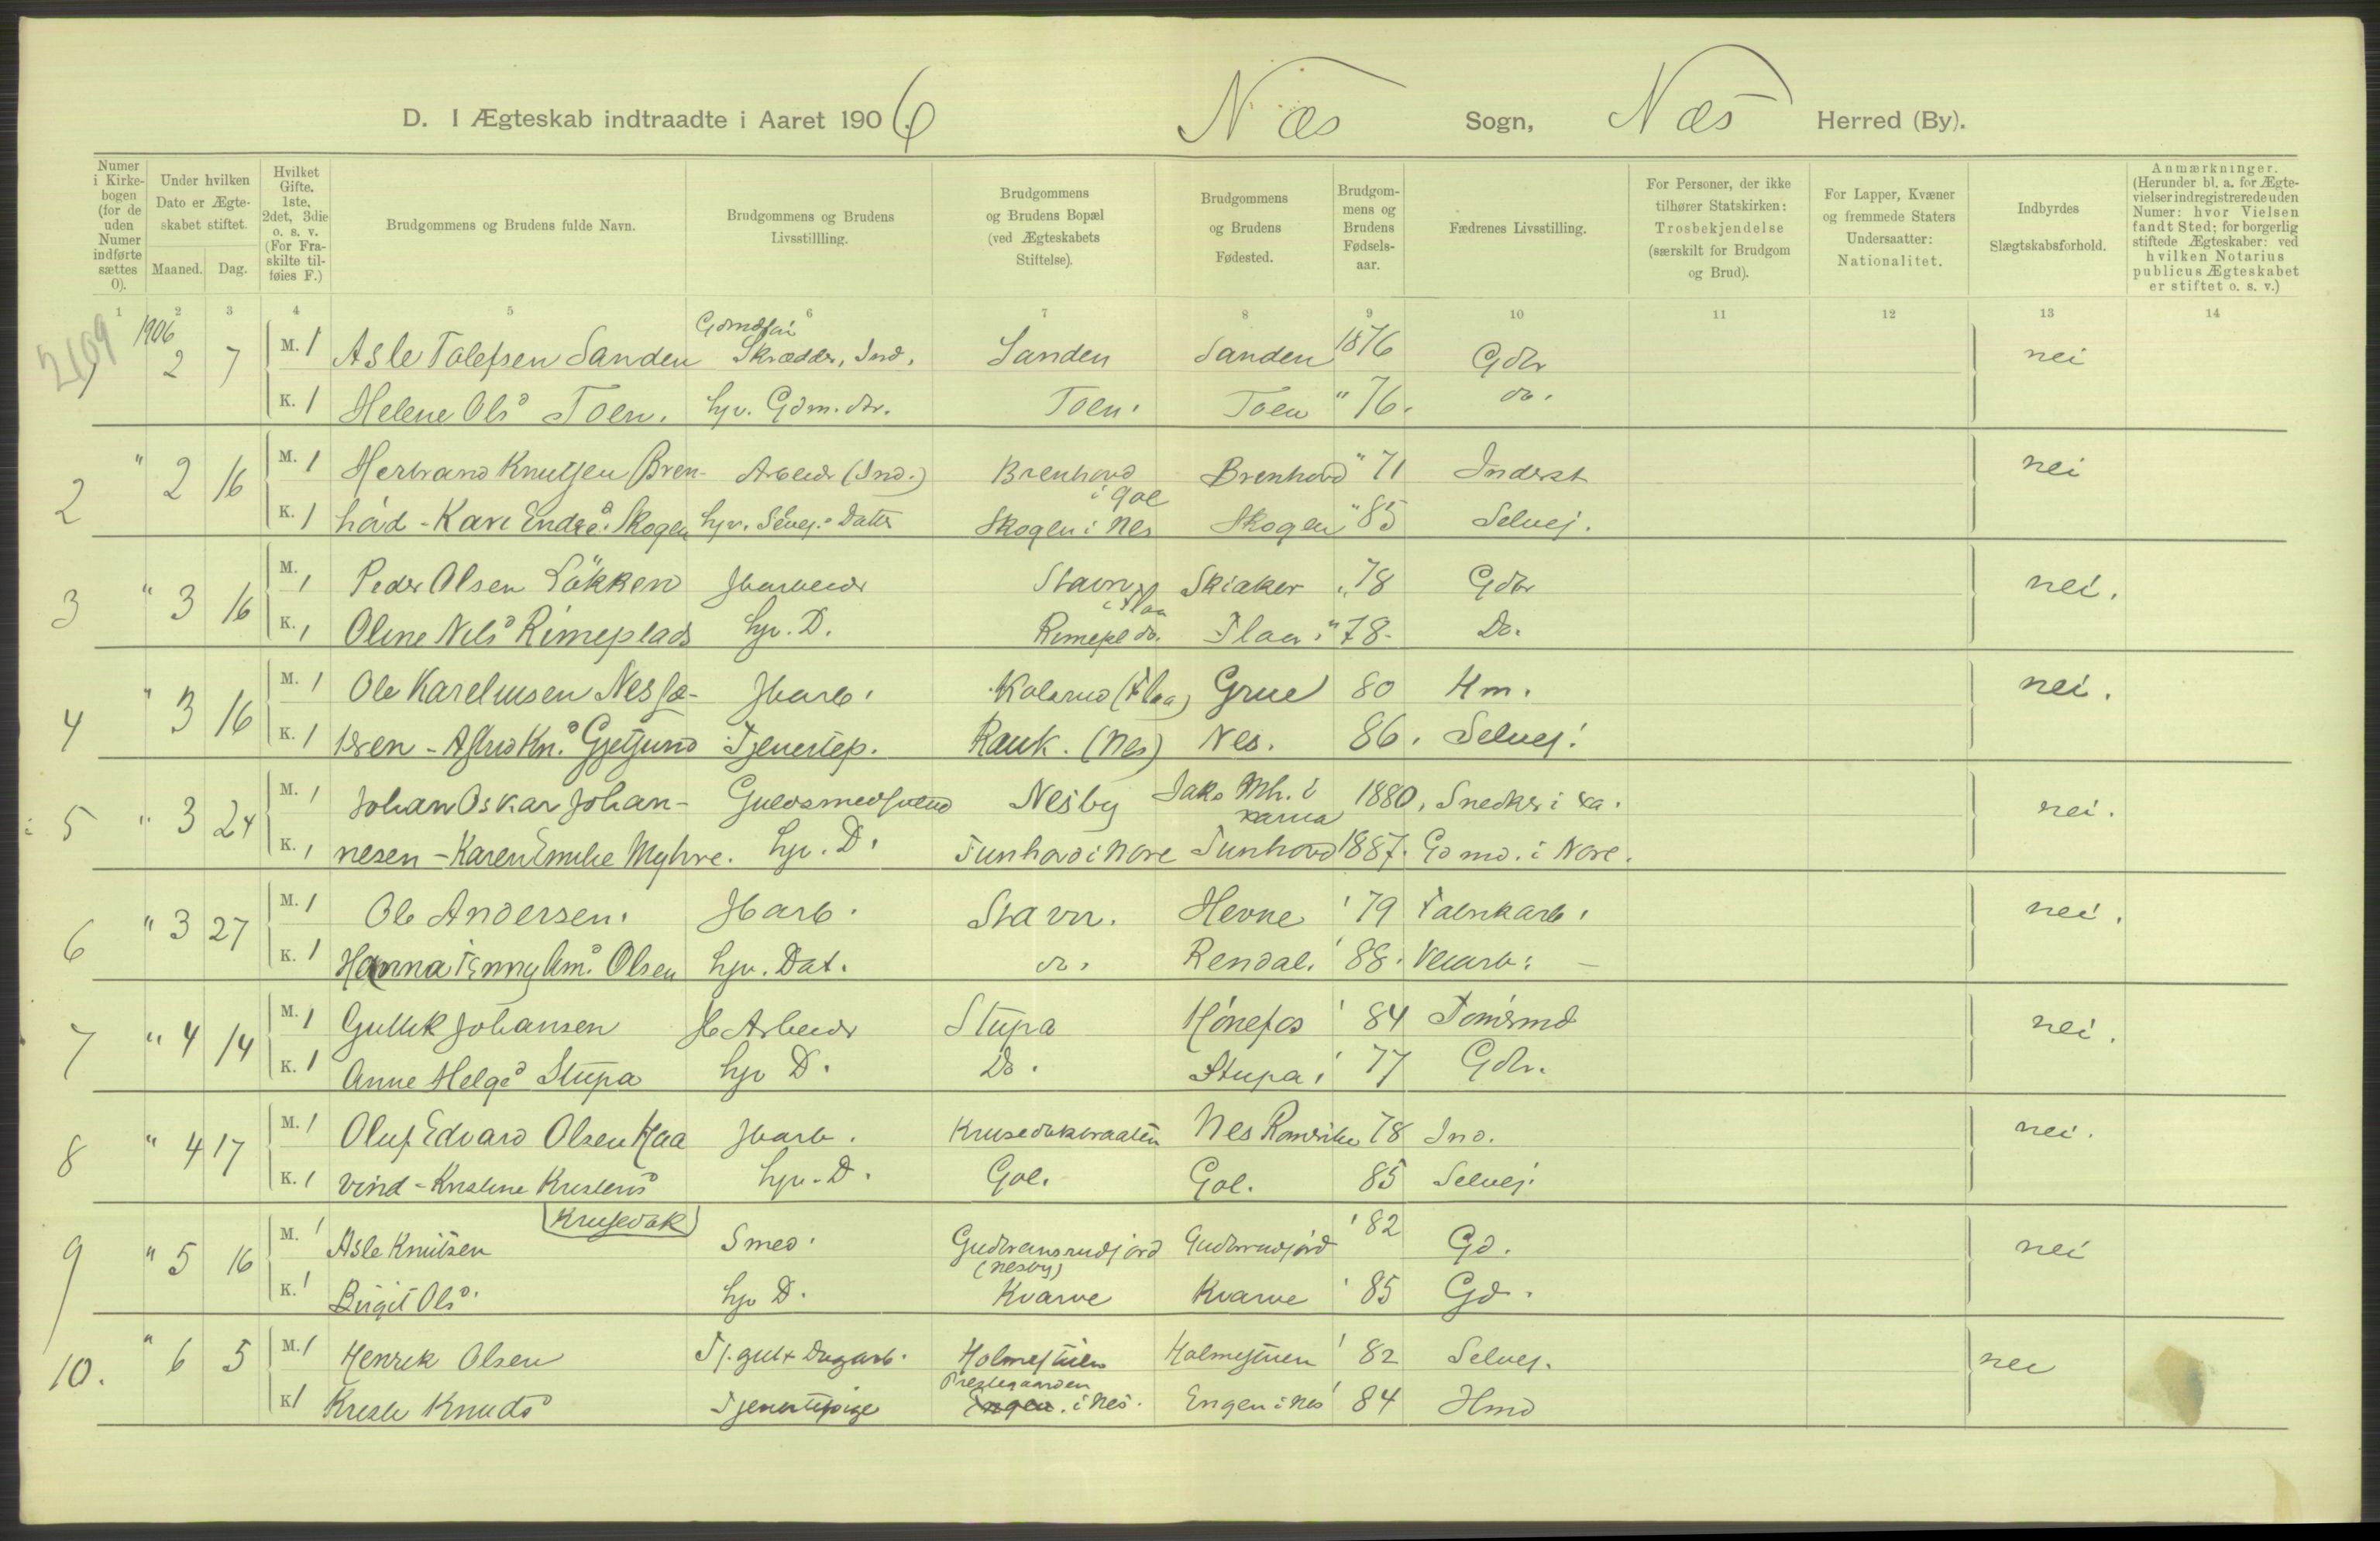 D. I Ægteskab indtraadte i Aaret 1906 Næs Sogn, Næs Herred (By).
Numer i Kirkebogen (for de uden Numer indførte sættes 0).
Under hvilken Dato er Ægteskabet stiftet.
Maaned. Dag.
Hvilket Gifte. 1ste, 2det, 3die o. s. v. (For Fraskilte tilføies F.)
Brudgommens og Brudens fulde Navn.
Brudgommens og Brudens Livsstillling.
Brudgommens og Brudens Bopæl (ved Ægteskabets Stiftelse).
Brudgommens og Brudens Fødested.
Brudgommens og Brudens Fødselsaar.
Fædrenes Livsstilling.
For Personer, der ikke tilhører Statskirken: Trosbekjendelse (særskilt for Brudgom og Brud).
For Lapper, Kvæner og fremmede Staters Undersaatter: Nationalitet.
Indbyrdes Slægtskabsforhold.
Anmærkninger. (Herunder bl. a. for Ægtevielser indregistrerede uden Numer: hvor Vielsen fandt Sted; for borgerlig stiftede Ægteskaber: ved hvilken Notarius publicus Ægteskabet er stiftet o. s. v.)
1 2 3 4 5 6 7 8 9 10 11 12 13 14
2109
1906 2 7 M. 1 Asle Tolefsen Sanden Skrædder, Ind. Sanden Sanden 1876 Gdbr nei
K. 1 Helene Olsd Toen. hjv. Gdm. dtr. Toen. Toen " 76. do.
2 " 2 16 M. 1 Herbrand Knutsen Bren- Arbeider (Ind.) Brenhovd i Gol Brenhovd " 71 Inderst nei
K. 1 hovd - Kari Endred. Skogen hjv. Selvej. Datter Skogen i Nes Skogen " 85 Selvej.
3 " 3 16 M. 1 Peder Olsen Løkken Jbarbeider Stavn i Flaa Skiaker " 78 Gdbr nei.
K. 1 Oline Nilsd Rimeplads hjv. D. Rimepl do. Flaa " 78. Do.
4 " 3 16 M. 1 Ole Kareliusen Nessæ- Jbarb. Kolsrud (Flaa) Grue 80 Hm. nei.
K. 1 teren - Astrid Kn.d Gjetsund Tjenestep. Rauk. (Nes) Nes. 86. Selvej.
5 " 3 24 M. 1 Johan Oskar Johan- Guldsmedsvend Nesby 1880. Snedker i nei.
K. 1 nesen - Karen Emilie Myhre. hjv. D. Tunhovd i Nore Tunhovd 1887. Gdmd. i Nore.
6 " 3 27 M. 1 Ole Andersen. Jbarb. Stavn. Hevne ' 79 Fabrikarb. nei.
K. 1 Hanna Jenny Am.d Olsen hjv. Dat. do. Rendal. ' 88. Veiarb. -
7 " 4 14 M. 1 Gullik Johansen Jb Arbeider Stupa Hønefos ' 84 Tømrmd nei.
K. 1 Anne Helged Stupa hjv D. Do. Stupa. ' 77 Gdbr.
8 " 4 17 M. 1 Oluf Edvard Olsen Haa Jbarb. Krusedokbraaten Nes Romerike 78 Ind. nei.
K. 1 vind - Kristine Kristensd hjv. D. Gol. Gol. 85 Selvej.
(Krusedok)
9 " 5 16 M. 1 Asle Knutsen Smed. Gudbransrudjord (Nesby) Gudbrrudjord ' 82 Gd. nei
K. 1 Birgit Olsd. hjv D. Kvarve Kvarve ' 85 Gd.
10. " 6 5 M. 1 Henrik Olsen Tj. gut + Dagarb. Holmestuen Holmestuen ' 82 Selvej. nei
K 1 Kristi Knudsd Tjenestepige Prestegaarden Engen i Nes. Engen i Nes ' 84 Hmd